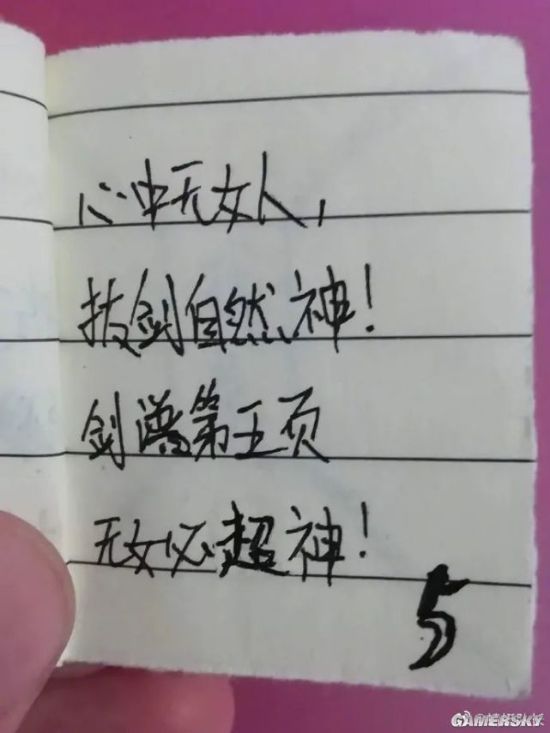 心中无女人，
拔剑自然神！
剑谱第五页
无女必超神！
5
GAMERSKY